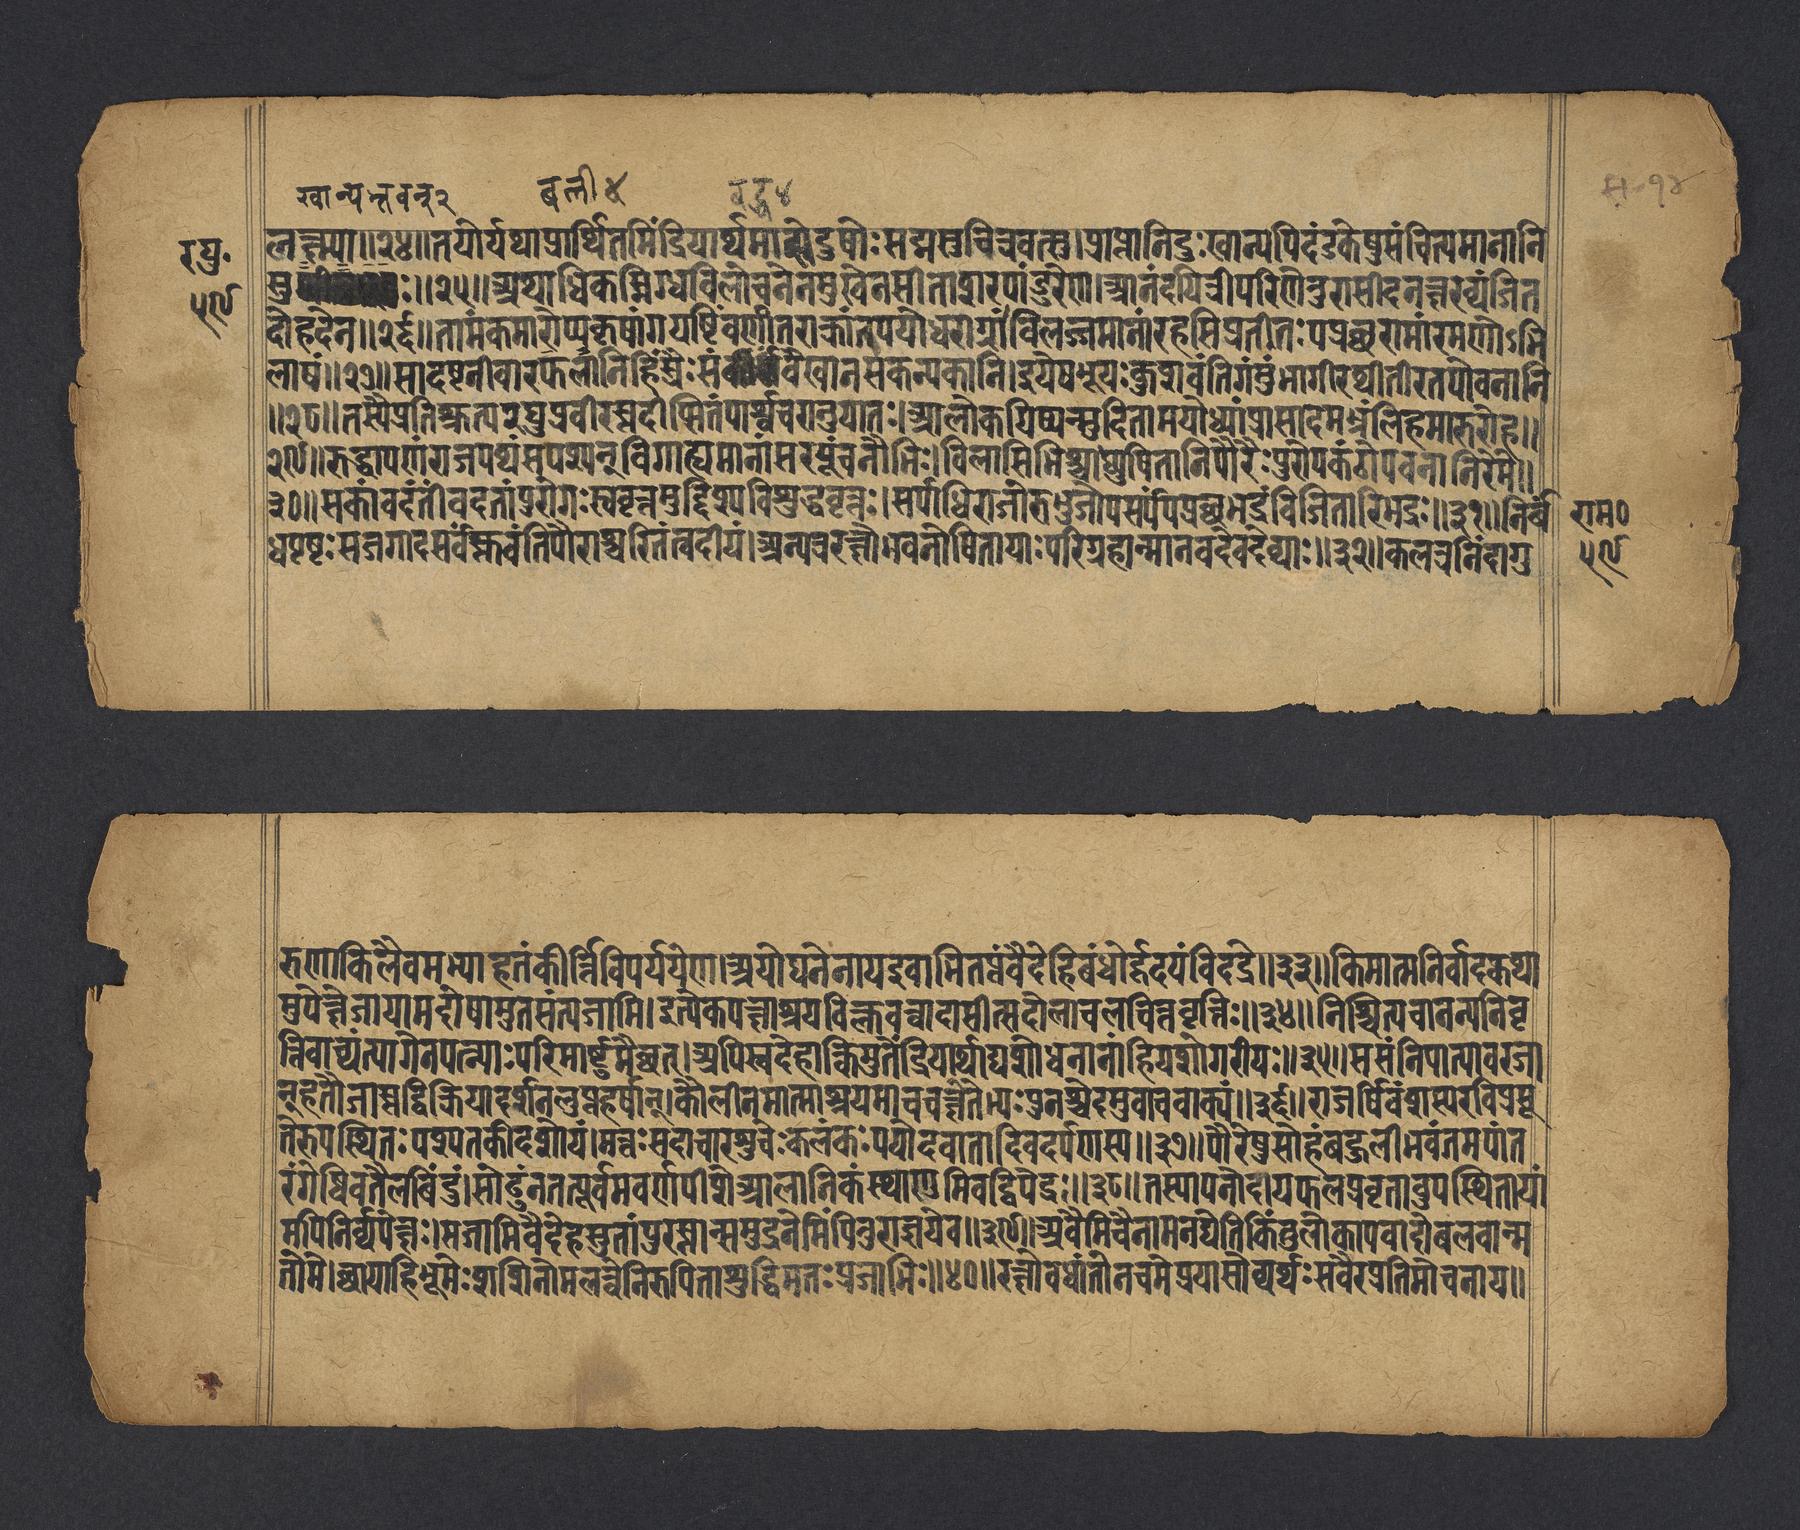 खान्यभवन्२ बली४ बद्ध४
स-१४
रघु॰
५९
लक्ष्म्या॥२४॥तयोर्यथाप्रार्थितमिंद्रियार्थमासेदुषोःसद्मसुचित्रवत्सु।प्राप्तानिदुःखान्यपिदंडकेषुसंचिंत्यमानानि
सु॥२५॥अथाधिकस्निग्धविलोचनेनमुखेनसीताशरपांडुरेण।आनंदयित्रीपरिणेतुरासीदनक्षरव्यंजित
दोहदेन॥२६॥तामंकमारोप्यकृषांगयष्टिंवर्णांतराक्रांतपयोधराग्रां।विलज्जमानांरहसिप्रतीतःपप्रछरामांरमणोऽभि
लाषं॥२७॥सादष्टनीवारफलानिहिंस्रैःसंवैखानसकन्यकानि।इयेषभूयःकुशवंतिगंतुंभागीरथीतीरतपोवनानि
॥२८॥तस्यैप्रतिश्रुत्यरघुप्रवीरस्तदीप्सितंपार्श्वचरानुयातः।आलोकयिष्यन्मुदितामयोध्यांप्रासादमभ्रंलिहमारुरोह॥
२९॥रुद्धापणंराजपथंसपश्यन्विगाह्यमानांसरयूंचनौभिः।विलासिभिश्चाध्युषितानिपौरैःपुरोपकंठोपवनानिरेमे॥
३०॥सकिंवदंतींवदतांपुरोगःस्ववृत्तमुद्दिश्यविशुद्धवृत्तः।सर्पाधिराजोरुभुजोपसर्पंपप्रछभद्रंविजितारिभद्रः॥३१॥निर्बं
राम०
५९
धपृष्टःसजगादसर्वंस्तुवंतिपौराश्चरितंत्वदीयं।अन्यत्ररक्षोभवनोषितायाःपरिग्रहान्मानवदेवदेव्याः॥३२॥कलत्रनिंदागु
रुणाकिलैवमभ्याहतंकीर्त्तिविपर्ययेण।अयोघनेनायइवाभितप्तंवैदेहिबंधोर्हृदयंविदद्रे॥३३॥किमात्मनिर्वादकथा
मुपेक्षेजायामदोषामुतसंत्यजामि।इत्येकपक्षाश्रयविक्लवत्वादासीत्सदोलाचलचित्तवृत्तिः॥३४॥निश्चित्यचानन्यनिवृ
त्तिवाच्यंत्यागेनपत्न्याःपरिमार्ष्टुमैछत्।अपिस्वदेहात्किमुतेंद्रियार्थाद्यशोधनानांहियशोगरीयः॥३५॥ससंनिपात्यावरजा
न्हतौजास्तद्विक्रियादर्शनलुप्तहर्षान्।कौलीनमात्माश्रयमाचचक्षेतेभ्यःपुनश्चेदमुवाचवाक्यं॥३६॥राजर्षिवंशस्यरविप्रसू
तेरुपस्थितःपश्यतकीदृशोयं।मत्तःसदाचारशुचेःकलंकःपयोदवातादिवदर्पणस्य॥३७॥पौरेषुसोहंबहुलीभवंतमपांत
रंगेष्विवतैलबिंदुं।सोढुंनतत्पूर्वमवर्णमीशेआलानिकंस्थाणुमिवद्विपेंद्रः॥३८॥तस्यापनोदायफलप्रवृतावुपस्थितायां
मपिनिर्व्यपेक्षः।त्यजामिवैदेहसुतांपुरस्तान्समुद्रनेमिंपितुराज्ञयेव॥३९॥अवैमिचैनामनघेतिकिंतुलोकापवादोबलवान्म
तोमे।छायाहिभूमेःशशिनोमलत्वेनिरुपिताशुद्धिमतःप्रजाभिः॥४०॥रक्षोवधांतोनचमेप्रयासोव्यर्थःसवैरप्रतिमोचनाय॥